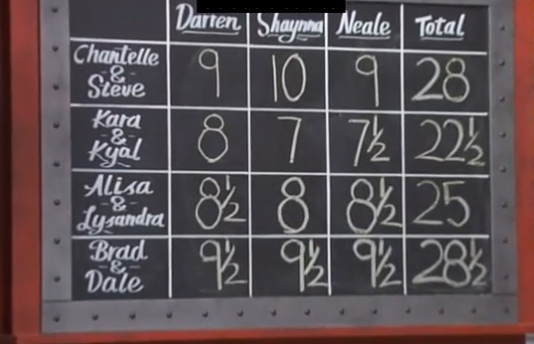 Darren Shaynna Neale Total
Chantelle & Steve 9 10 9 28
Kara & Kyal 8 7 7½ 22½
Alisa & Lysandra 8½ 8 8½ 25
Brad & Dale 9½ 9½ 9½ 28½